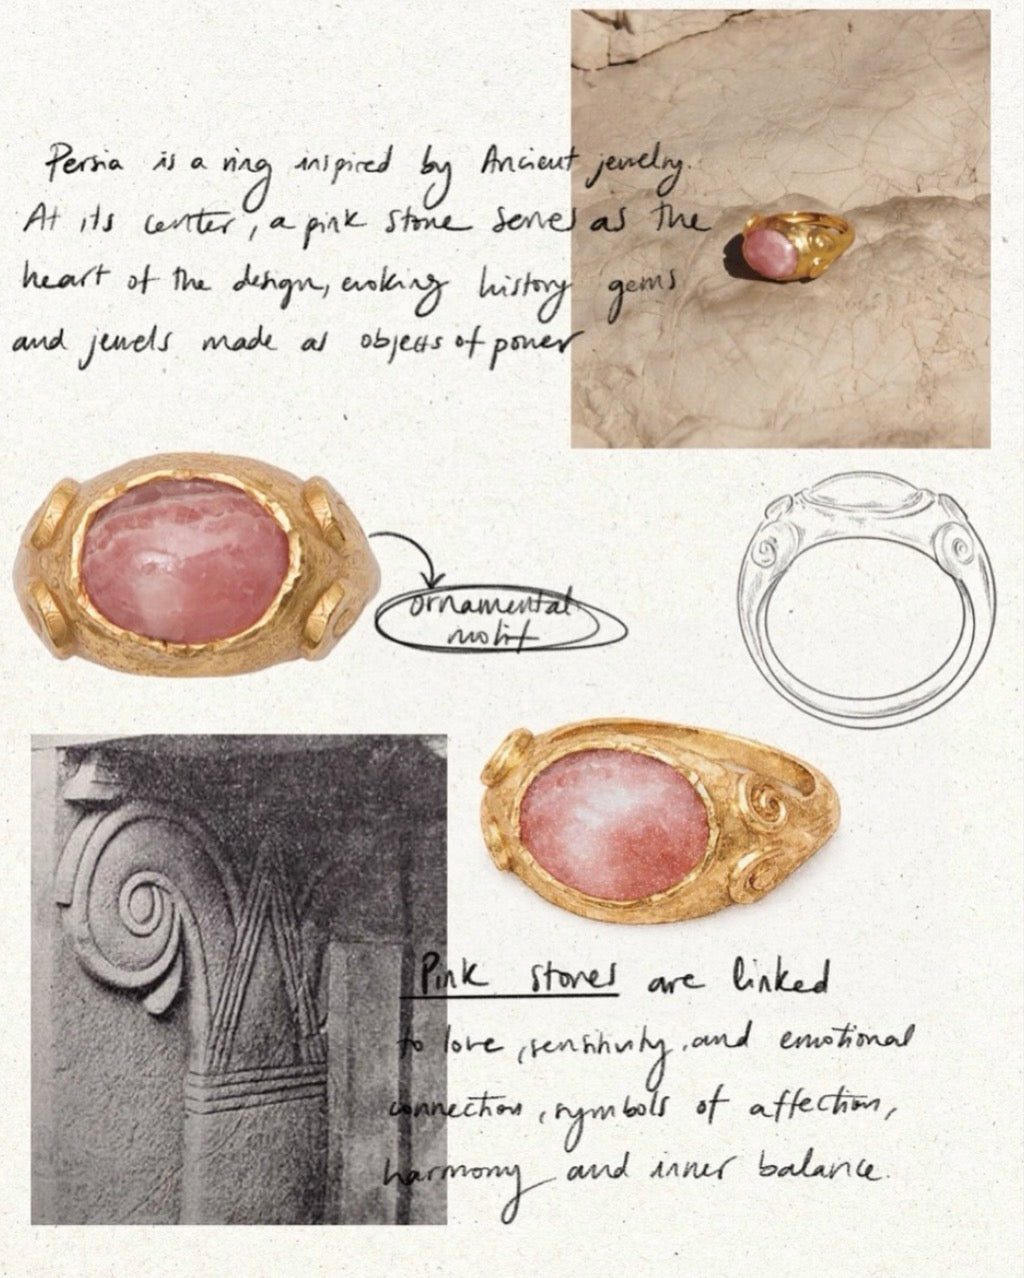 Persia is a ring inspired by Ancient jewelry.
At its center, a pink stone serves as the
heart of the design, evoking history gems
and jewels made as objects of power
ornamental
motif
Pink stones are linked
to love, sensitivity, and emotional
connection, symbols of affection,
harmony and inner balance.